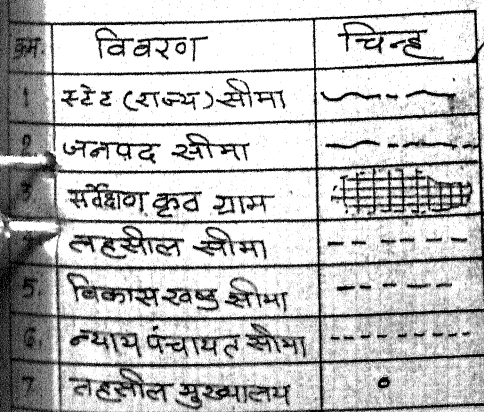 क्रम. विवरण चिन्ह
1 स्टेट (राज्य) सीमा
2 जनपद सीमा
3 सर्वेक्षण कृत ग्राम
तहसील सीमा
5. विकास खण्ड सीमा
6. न्याय पंचायत सीमा
7 तहसील मुख्यालय